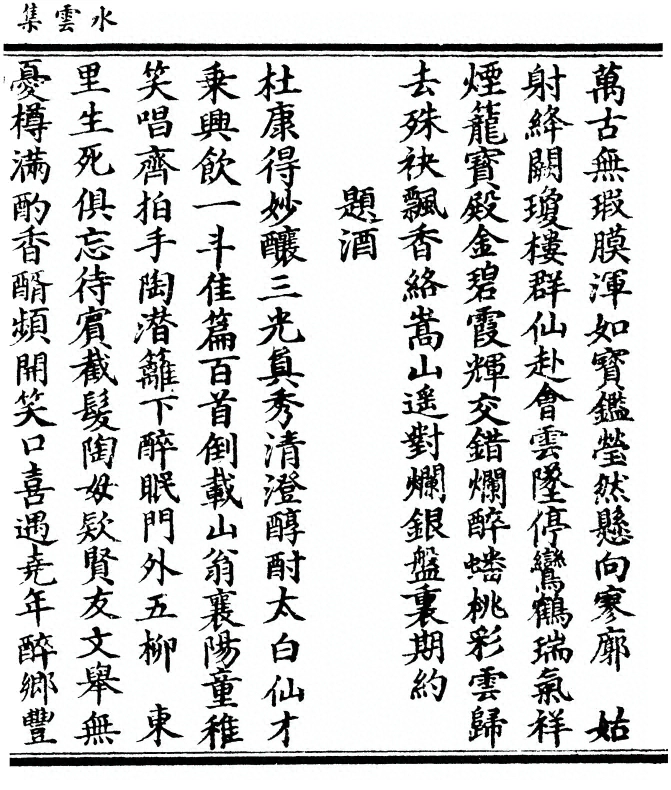 水雲集
萬古無瑕膜渾如寶鑑瑩然懸向寥廓　姑
射絳闕瓊樓群仙赴會雲墜停鸞鶴瑞氣祥
煙籠寶殿金碧霞輝交錯爛醉蟠桃彩雲歸
去殊袂飄香絡嵩山遥對爛銀盤裏期約
題酒
杜康得妙釀三光真秀清澄醇酎太白仙才
乘興飲一斗佳篇百首倒載山翁襄陽童稚
笑唱齊拍手陶潜籬下醉眠門外五柳　東
里生死俱忘待賓截髮陶母欵賢友文舉無
憂樽滿酌香醑頻開笑口喜遇堯年醉鄉豐